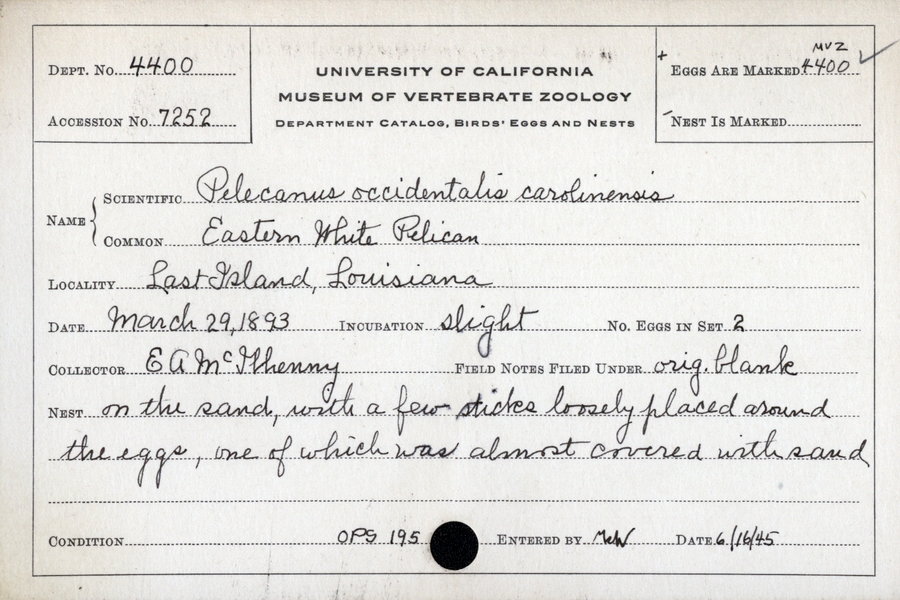 Dept. No. 4400
Accession No. 7252
UNIVERSITY OF CALIFORNIA
MUSEUM OF VERTEBRATE ZOOLOGY
Department Catalog, Birds' Eggs and Nests
MVZ
+ Eggs Are Marked 4400 ✓
- Nest Is Marked
Name { Scientific Pelecanus occidentalis carolinensis
Common Eastern White Pelican
Locality Last Island, Louisiana
Date March 29, 1893 Incubation slight No. Eggs in Set 2
Collector E A McIlhenny Field Notes Filed Under orig. blank
Nest on the sand, with a few sticks loosely placed around
the eggs, one of which was almost covered with sand
Condition OPS 195 Entered by McW Date 6/16/45